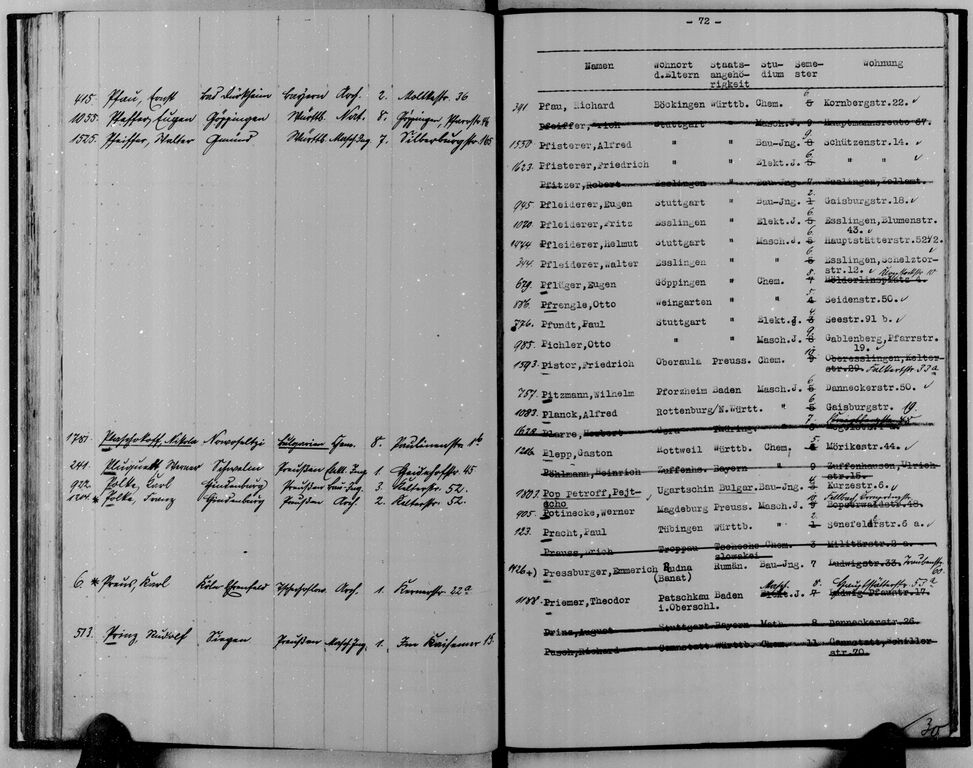 415. Pfau, Ernst Bad Dürkheim Bayern Arch. 2. Moltkestr. 36
1055. Pfeffer, Eugen Göppingen Württb. Nat. 8. Göppingen, Pfarrstr.
1525. Pfeiffer, Walter Gmünd Württb. Masch.Ing 7. Silberburgstr. 165
1781. Nikola Bulgarien 8. Paulinenstr. 1b
241. Werner Preußen 1. 45
922. Polte, Karl Hindenburg Preußen Bau-Ing 3. 52.
Polte, Franz Hindenburg Preußen Arch. 2. 52.
6. * Preus, Karl Köln-Ehrenfeld Tschechoslow. Arch. 1. Kernerstr. 22a
513. Prinz Rudolf Siegen Preußen Masch.Ing. 1. Im Kaisemer
- 72 -
Namen Wohnort d.Eltern Staats-angehö-rigkeit Stu-dium Seme-ster Wohnung
391 Pfau, Richard Böckingen Württb. Chem. 6 5 Kornbergstr.22.
Pfeiffer, Erich Stuttgart " Masch.J. 9 Hauptmannsreute 67.
1550. Pfisterer, Alfred " " Bau-Jng. 9 8 Schützenstr.14.
1623. Pfisterer, Friedrich " " Elekt.J. 6 5 " "
Pfitzer, Robert Esslingen " Bau-Jng. 7 Esslingen, Zollamt.
945. Pfleiderer, Eugen Stuttgart " Bau-Jng. 2 1 Gaisburgstr.18.
1020. Pfleiderer, Fritz Esslingen " Elekt.J. 6 5 Esslingen, Blumenstr.
43.
1444. Pfleiderer, Helmut Stuttgart " Masch.J. 6 5 Hauptstätterstr.52/2.
344. Pfleiderer, Walter Esslingen " " 6 5 Esslingen, Schelztor-
str.12.
629. Pflüger, Eugen Göppingen " Chem. 8 7 Hölderlinsplatz 4.
186. Pfrengle, Otto Weingarten " " 5 4 Seidenstr.50.
776. Pfundt, Paul Stuttgart " Elekt.J. 4 3 Seestr.91 b.
985. Pichler, Otto " " Masch.J. 9 8 Gablenberg, Pfarrstr.
19.
1593. Pistor, Friedrich Oberaula Preuss. Chem. 10 9 Oberesslingen, Kelter-
str.29. Falkertstr. 53a
757. Pitzmann, Wilhelm Pforzheim Baden Masch.J. 6 5 Danneckerstr.50.
1083. Planck, Alfred Rottenburg/N.Württ. " 6 5 Gaisburgstr. 19.
1628. Plarre, Herbert Gera Thüring. " 7
1286. Plepp, Gaston Rottweil Württb. Chem. 5 4 Mörikestr.44.
Pöhlmann, Heinrich Zuffenhs. Bayern " 9 Zuffenhausen, Ulrich-
str.15.
1801. Pop Petroff, Pejt-scho Ugartschin Bulgar. Bau-Jng. 4 Kurzestr.6.
905. Potinecke, Werner Magdeburg Preuss. Masch.J. 10 9
123. Pracht, Paul Tübingen Württb. " 2 Senefelderstr.6 a.
Preuss, Erich Troppau Tschecho-slowakei Chem. 3 Militärstr.2 a.
1426 +) Pressburger, Emmerich Rudna (Banat) Rumän. Bau-Jng. 7 Ludwigstr.33. Traubenstr. 60.
1188. Priemer, Theodor Patschkau i.Oberschl. Baden Masch. Elekt.J. 8. 7 Hauptstätterstr. 53a Ludwig Pfaustr.17.
Prinz, August Stuttgart Bayern Math. 8 Danneckerstr.26.
Pusch, Richard Cannstatt Württb. Chem. 11 Cannstatt, Schiller-
str.70.
30